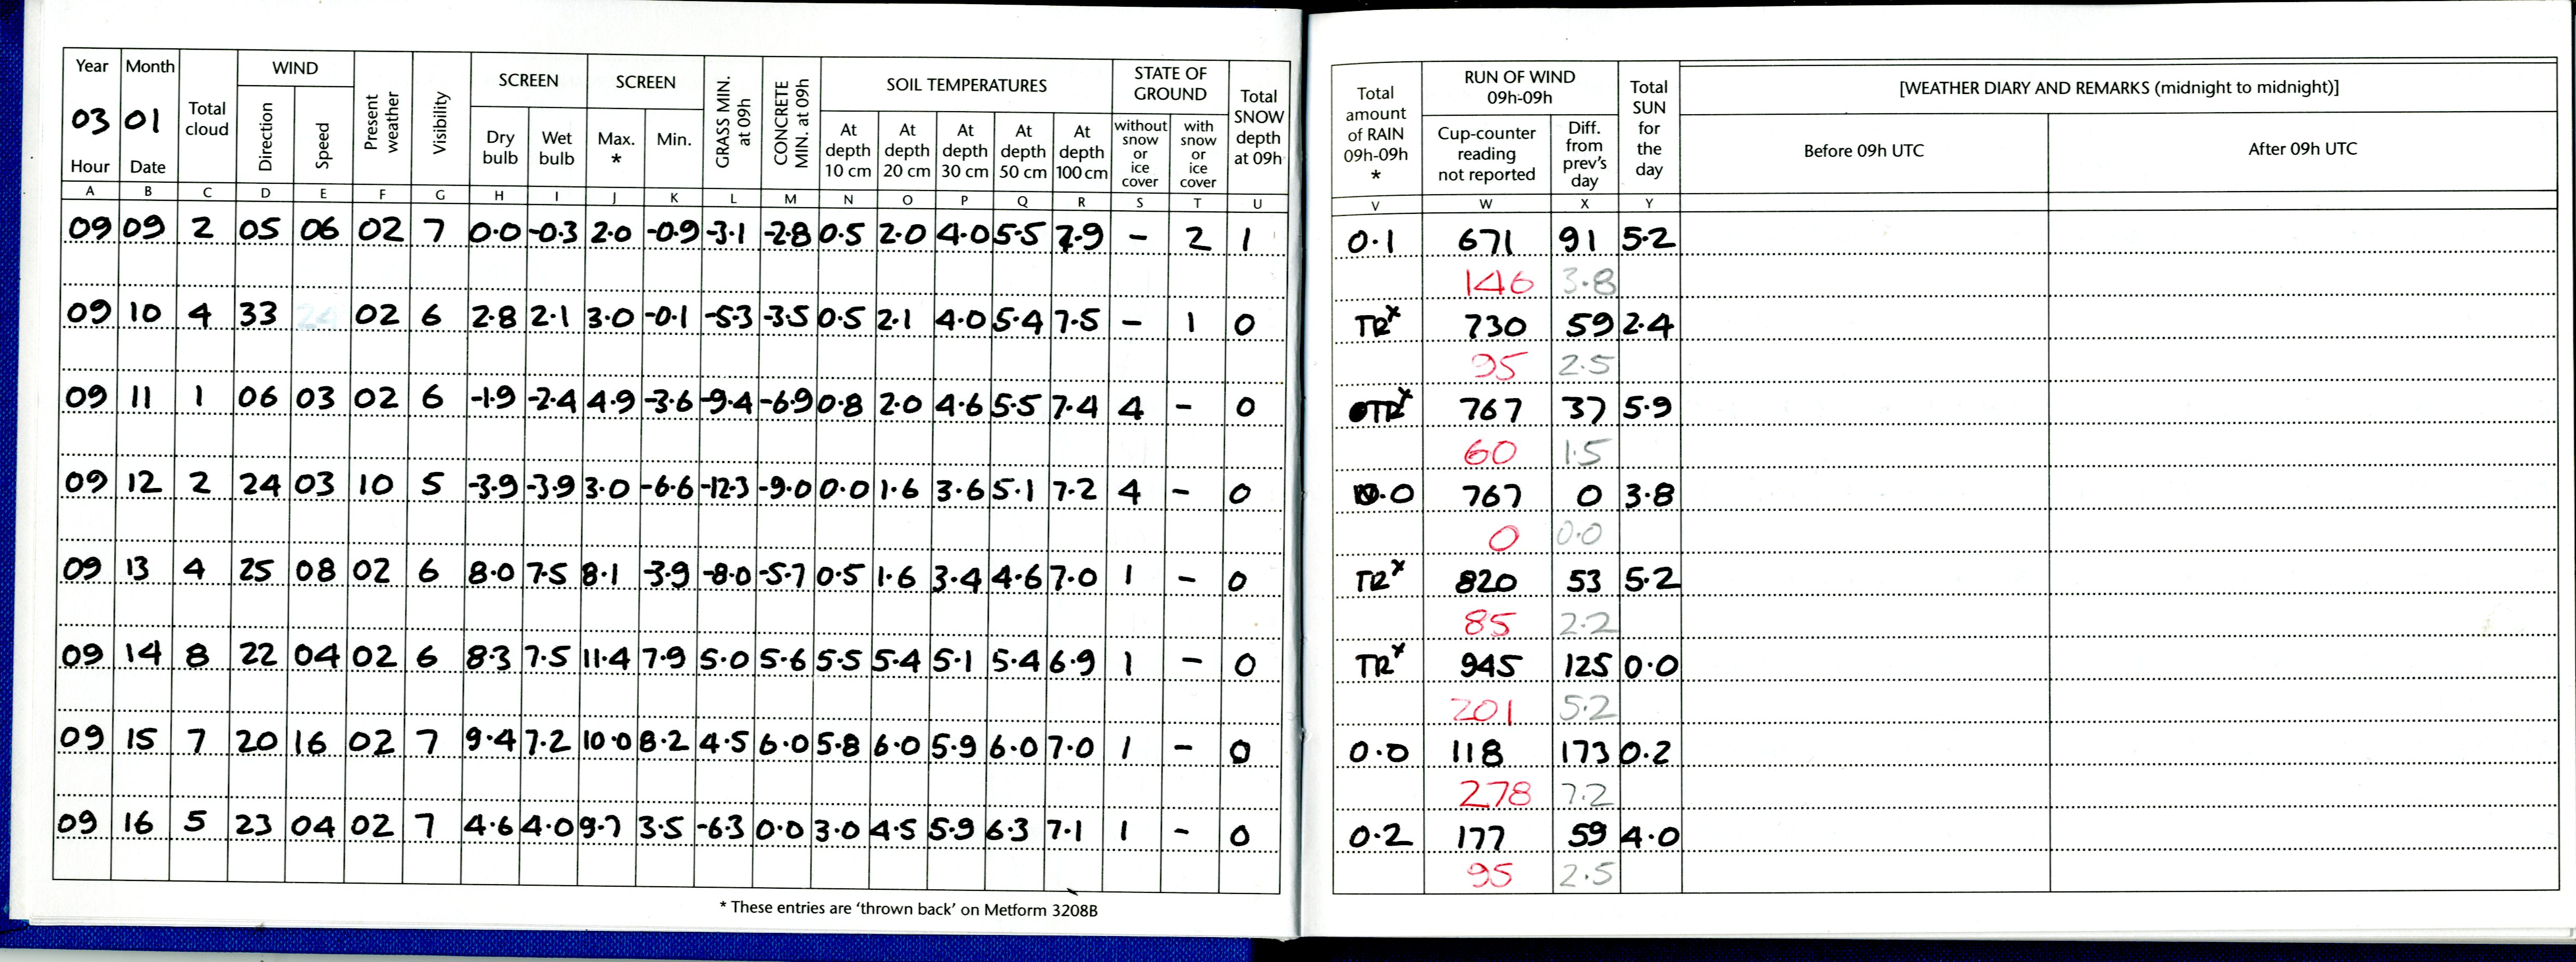 Year Month Total cloud WIND Present weather Visibility SCREEN SCREEN GRASS MIN. at 09h CONCRETE MIN. at 09h SOIL TEMPERATURES STATE OF GROUND Total SNOW depth at 09h
03 01 Direction Speed Dry bulb Wet bulb Max. * Min. At depth 10 cm At depth 20 cm At depth 30 cm At depth 50 cm At depth 100 cm without snow or ice cover with snow or ice cover
Hour Date
A B C D E F G H I J K L M N O P Q R S T U
09 09 2 05 06 02 7 0.0 -0.3 2.0 -0.9 -3.1 -2.8 0.5 2.0 4.0 5.5 7.9 - 2 1
09 10 4 33 02 6 2.8 2.1 3.0 -0.1 -5.3 -3.5 0.5 2.1 4.0 5.4 7.5 - 1 0
09 11 1 06 03 02 6 -1.9 -2.4 4.9 -3.6 -9.4 -6.9 0.8 2.0 4.6 5.5 7.4 4 - 0
09 12 2 24 03 10 5 -3.9 -3.9 3.0 -6.6 -12.3 -9.0 0.0 1.6 3.6 5.1 7.2 4 - 0
09 13 4 25 08 02 6 8.0 7.5 8.1 -3.9 -8.0 -5.7 0.5 1.6 3.4 4.6 7.0 1 - 0
09 14 8 22 04 02 6 8.3 7.5 11.4 7.9 5.0 5.6 5.5 5.4 5.1 5.4 6.9 1 - 0
09 15 7 20 16 02 7 9.4 7.2 10.0 8.2 4.5 6.0 5.8 6.0 5.9 6.0 7.0 1 - 0
09 16 5 23 04 02 7 4.6 4.0 9.7 3.5 -6.3 0.0 3.0 4.5 5.9 6.3 7.1 1 - 0
* These entries are 'thrown back' on Metform 3208B
Total amount of RAIN 09h-09h * RUN OF WIND 09h-09h Total SUN for the day [WEATHER DIARY AND REMARKS (midnight to midnight)]
Cup-counter reading not reported Diff. from prev's day Before 09h UTC After 09h UTC
V W X Y
0.1 671 91 5.2
146 3.8
TR* 730 59 2.4
95 2.5
TR* 767 37 5.9
60 1.5
0.0 767 0 3.8
0 0.0
TR* 820 53 5.2
85 2.2
TR* 945 125 0.0
201 5.2
0.0 118 173 0.2
278 7.2
0.2 177 59 4.0
95 2.5